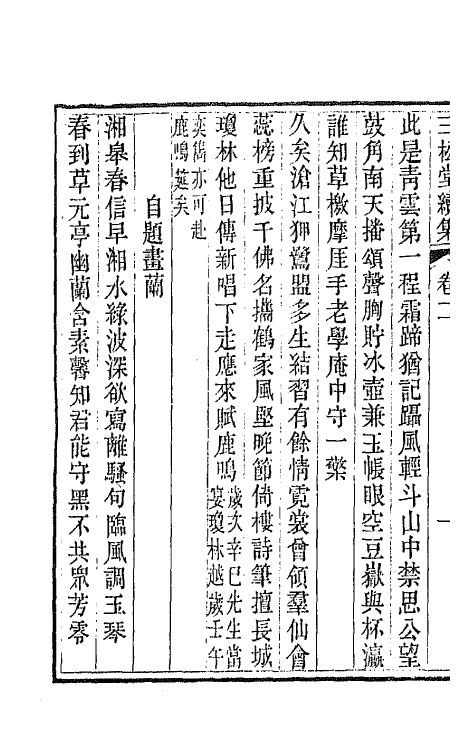 三松堂續集 卷二 一
此是靑雲第一程霜蹄猶記躡風輕斗山中禁思公望
鼓角南天播頌聲胸貯冰壺兼玉帳眼空豆嶽與杯瀛
誰知草檄摩厓手老學庵中守一檠
久矣滄江狎鷺盟多生結習有餘情霓裳曾領羣仙會
蕊榜重披千佛名攜鶴家風堅晚節倚樓詩筆擅長城
瓊林他日傳新唱下走應來賦鹿鳴歲次辛巳先生當
宴瓊林越歲壬午
奕雋亦可赴
鹿鳴筵矣
自題畫蘭
湘皋春信早湘水綠波深欲寫離騷句臨風調玉琴
春到草元亭幽蘭含素馨知君能守黑不共眾芳零